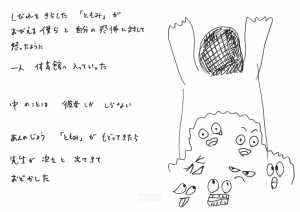 しびれを きらした 「ともみ」が
おびえる 僕らと 自分の 恐怖に対して
怒ったように
一人 体育館へ 入っていった
中のことは 彼女しか しらない
あんのじょう 「ともみ」が もどってきたら
先生が 次々と 出てきて
おどかした